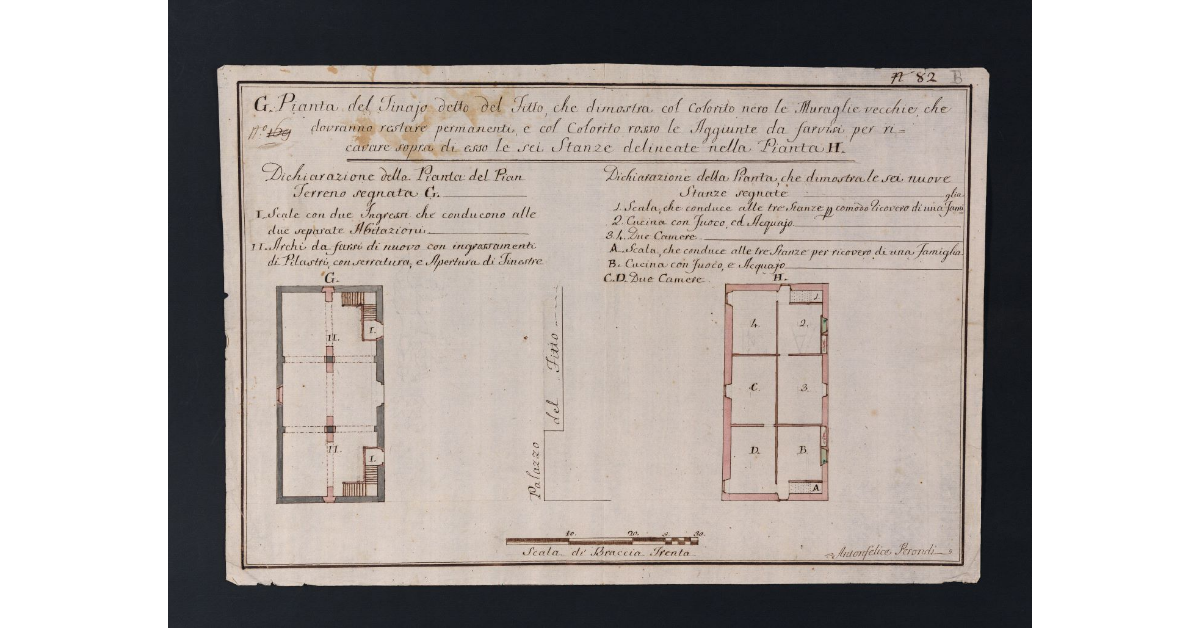 n 82 B
G. Pianta del Tinajo detto del Fitto, che dimostra col Colorito nero le Muraglie vecchie, che
n° 169
dovranno restare permanenti, e col Colorito rosso le Aggiunte da farvisi per ri=
cavare sopra di esso le sei Stanze delineate nella Pianta H.
Dichiarazione della Pianta del Pian
Terreno segnata G.
I. Scale con due Ingressi che conducono alle
due separate Abitazioni
II. Archi da farsi di nuovo con ingrossamenti
di Pilastri, con serratura, e Apertura di Finestre
Dichiarazione della Pianta, che dimostra le sei nuove
Stanze segnate
glia
1. Scala, che conduce alle tre Stanze p comodo ricovero di una fami
2. Cucina con fuoco, ed Acquajo
3. 4. Due Camere
A. Scala, che conduce alle tre Stanze per ricovero di una famiglia
B. Cucina con fuoco, e Acquajo
C. D. Due Camere
G.
I.
II.
II.
I.
Palazzo del Fitto
H.
1.
4. 2.
C. 3.
D. B.
A
10. 20. 5. 30.
Scala di Braccia Trenta
Antonfelice Perondi